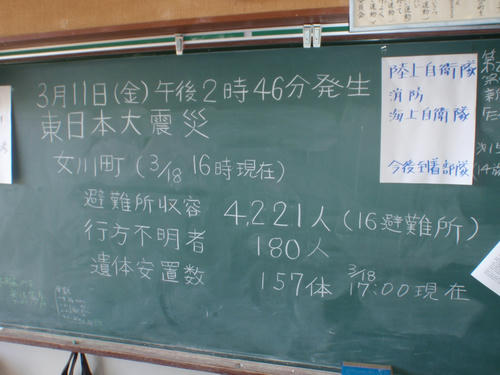 3月11日(金)午後2時46分発生
東日本大震災
女川町(3/18 16時現在)
避難所収容 4,221人(16避難所)
行方不明者 180人
遺体安置数 157体 3/18 17:00現在
陸上自衛隊
消防
海上自衛隊
今後到着部隊